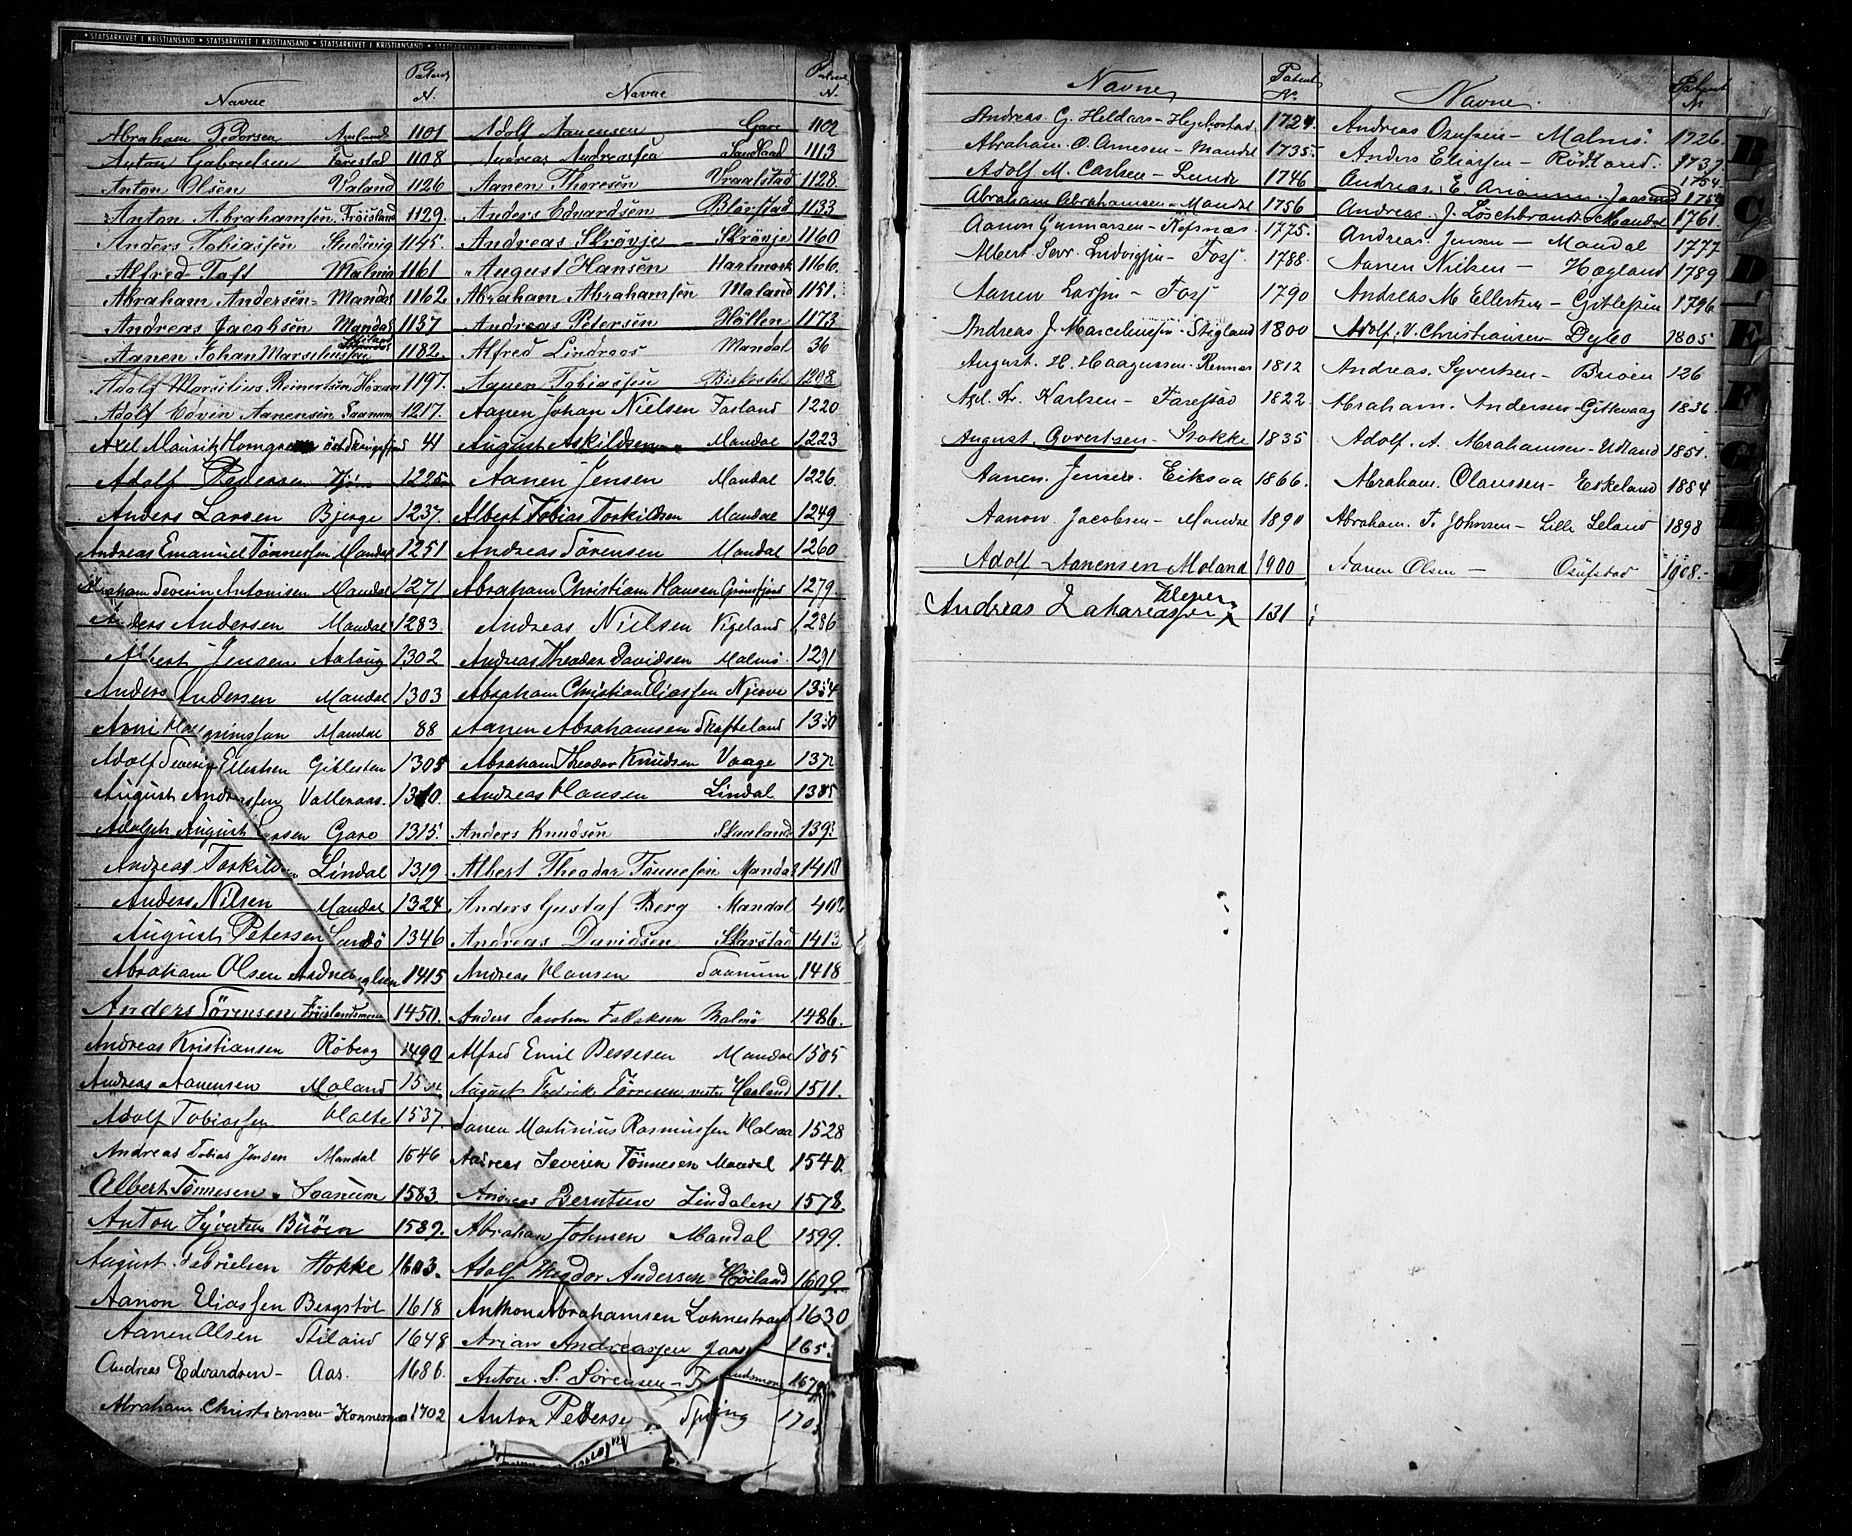 • STATSARKIVET I KRISTIANSAND • STATSARKIVET I KRISTIANSAND • STATSARKIVET I KRISTIANSAND •
Navne Patent N. Navne Patent N.
Abraham Pedersen 1101 Adolf Aanensen Gare 1102
Anton Gabrielsen Farestad 1108 Andreas Andreassen 1113
Anton Olsen Valand 1126 Aanen Thoresen Vraalstad 1128.
Anton Abrahamsen Fröisland 1129. Anders Edvardsen Blörstad 1133
Anders Tobiassen 1145. Andreas Skrövje Skrövje 1160
Alfred Toft Malmö 1161 August Hansen Hartmark 1166.
Abraham Andersen Mandal 1162 Abraham Abrahamsen Moland 1151.
Andreas Jacobsen Mandal 1157 Andreas Petersen Höllen 1173
Aanen Johan 1182. Alfred Lindroos Mandal 36
Adolf Marsilius Reinertsen 1197. Aanen Tobiassen Birkestöl 1298
Adolf Edvin Aanensen Saanum 1217. Aanen Johan Nielsen Fasland 1220
Axel Mauritz 41 August Askildsen Mandal 1223
Adolf Pedersen 1225 Aanen Jensen Mandal 1226.
Anders Larsen Bjerge 1237. Albert Tobias Torkildsen Mandal 1249
Andreas Emanuel Tönnessen Mandal 1251 Andreas Sörensen Mandal 1260
Abraham Severin Antonisen Mandal 1271 Abraham Christian Hansen Grönsfjord 1279
Anders Andersen Mandal 1283. Andreas Nielsen Vigeland 1286
Albert Jensen 1302 Andreas Theodor Davidsen Malmö. 1291
Anders Andersen Mandal 1303 Abraham Christian Eliassen Njerve
Mandal 88 Aanen Abrahamsen Skofteland
Adolf Severin Ellertsen Gitlesten 1305 Abraham Theodor Knudsen Vaage
August Andreassen Valleraas. 1310. Andreas Hansen Lindal 1385
Adolph August Larsen Gare 1315. Anders Knudsen Skaaland
Andreas Torkildsen Lindal 1319 Albert Theodor Tönnesen Mandal 1410
Anders Nilsen Mandal 1324 Anders Gustaf Berg Mandal
August Petersen Sandö 1346 Andreas Davidsen Skarstad 1413
Abraham Olsen 1415 Andreas Hansen Saanum 1418
Anders Sörensen Fröislandsmoen 1450. Anders Jacobsen 1486.
Andreas Kristiansen Röberg 1490 Alfred Emil Bessesen Mandal 1505
Andreas Aanensen Moland August Fredrik Haaland 1511.
Adolf Tobiassen Holte 1537. Aanen Martinius Rasmussen Holsaa 1528
Andreas Tobias Jensen Mandal 1546 Andreas Severin Tönnesen Mandal 1540.
Albert Tönnesen Saanum 1583 Andreas Berntsen Lindalen 1578.
Anton Syvertsen Buöen 1589. Abraham Johnsen Mandal 1599.
August Gabrielsen Stokke 1603. Adolf Theodor Andersen Höiland 1609.
Aanon Eliassen Bergstöl 1618 Anthon Abrahamsen 1630
Aanen Olsen Stiland 1648 Arian Andreassen
Andreas Edvardsen - Aas. 1686. Anton. S. Sörensen
Abraham Christiansen - 1702 Anton Pederse Spring
Navne Patent No. Navne Patent N
Andreas G. Heldars - 1724. Andreas Osufsen - Malmö. 1726.
Abraham. O. Arnesen - Mandal 1735. Anders Eliassen - Rödland. 1737.
Adolf M. Carlsen - Lunde 1746 Andreas E. 1754
Abraham Abrahamsen - Mandal 1756 Andreas. J. Löschbrandt Mandal 1761.
Aanon Gunnarsen - Refsnæs. 1775. Andreas. Jensen - Mandal 1777
Albert Sevr. Ludvigsen - Foss. 1788. Aanen Nielsen - Høgland 1789
Aanen Larsen - Foss 1790 Andreas M. Ellertsen - Gitlesten 1796
Andreas J. Marcelinsen - Stigland 1800 Adolf. V. Christiansen - Dybo 1805
August. H. Haagussen. Rennes 1812 Andreas. Syvertsen - Buöen 126
Axel Kr. Karlsen - Farestad 1822 Abraham. Andersen - Gittevaag 1836.
August. Govertsen - Stokke 1835 Adolf. A. Abrahamsen - Udland 1851.
Aanen. Jensen. Eiksaa 1866. Abraham. Olaussen - Eskeland 1884
Aanon. Jacobsen - Mandal 1890 Abraham. T. Johnsen - Lille Leland 1898
Adolf Aanensen Moland 1900 Aanen Olsen - Osufstad 1908.
Kleven
Andreas Zakariassen 131
B
C
D
E
F
G